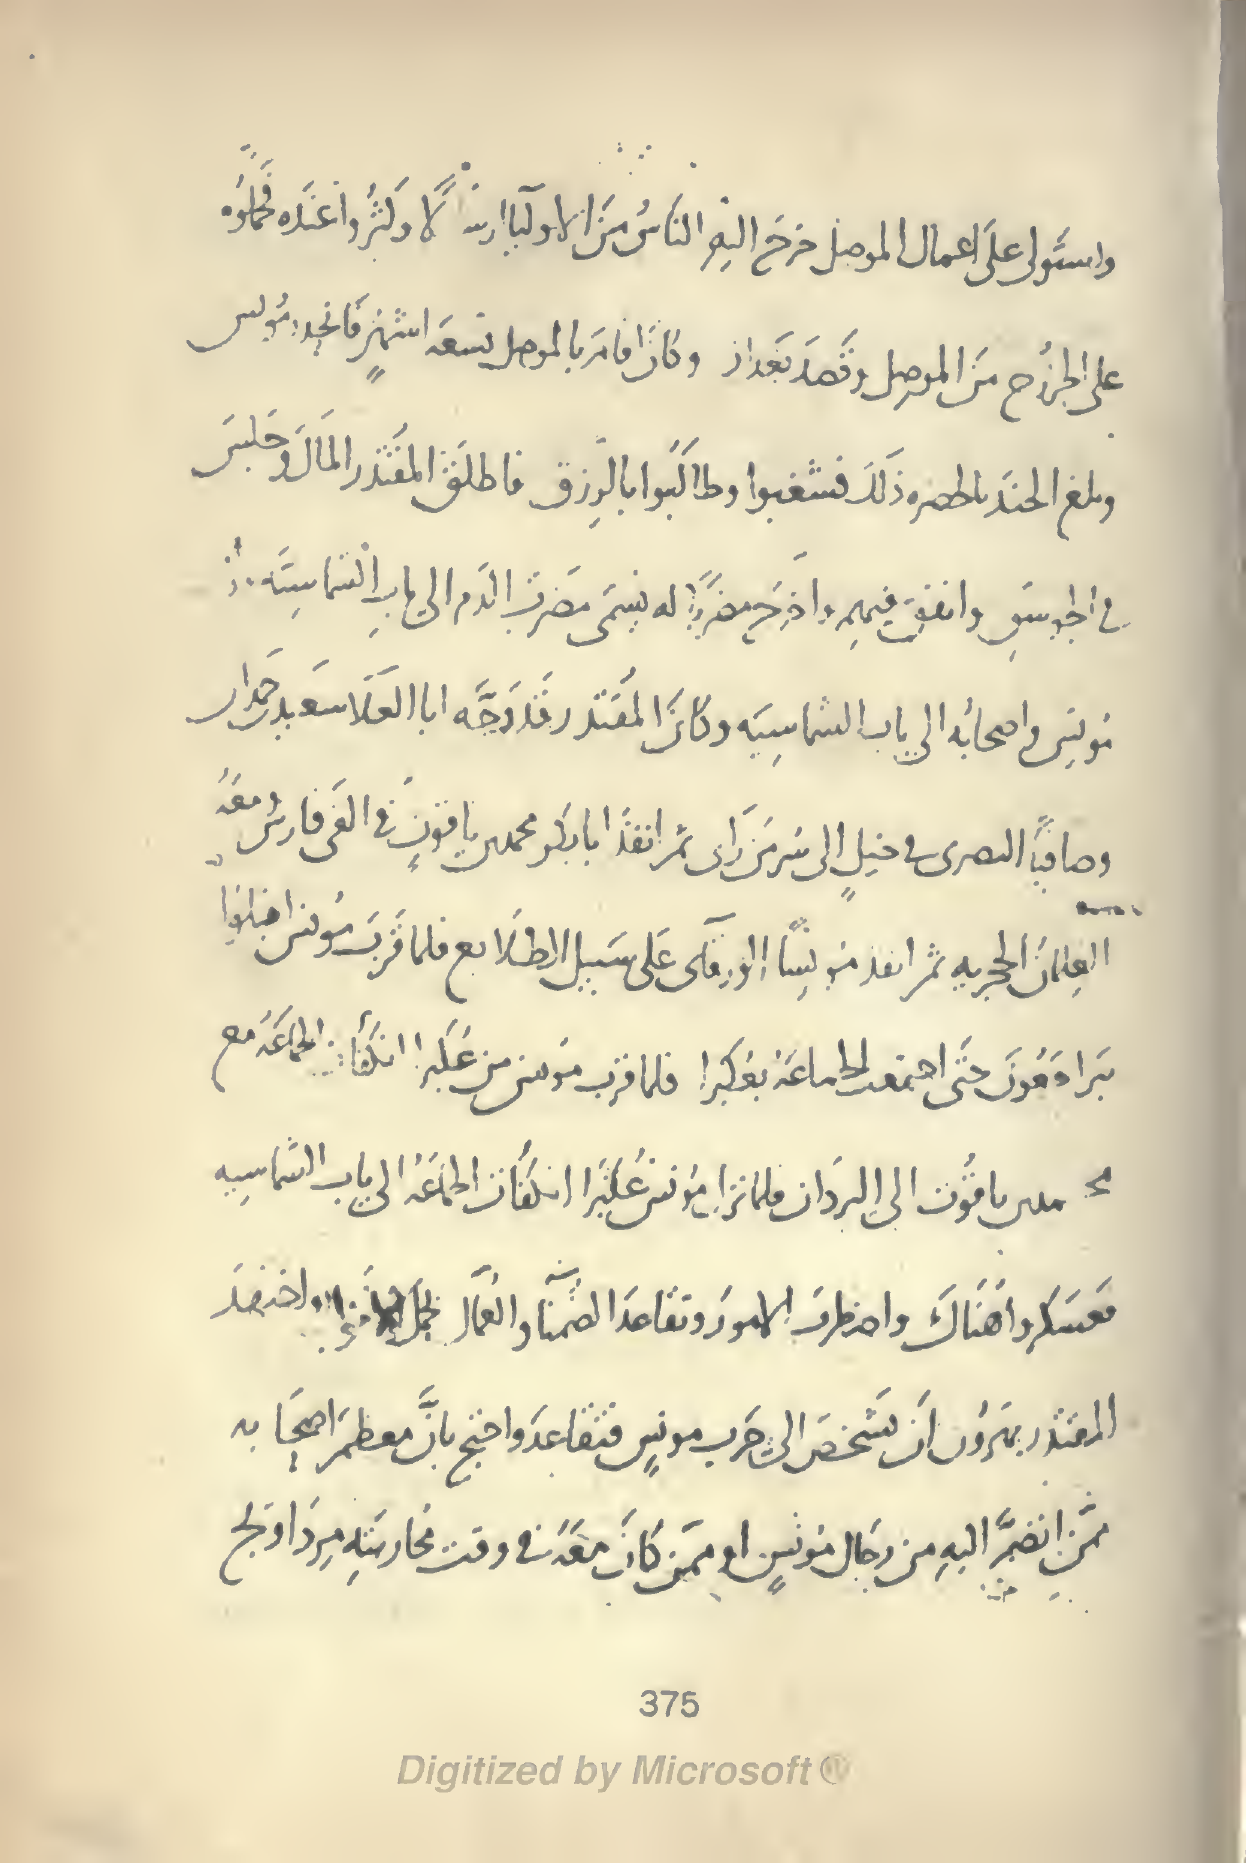 واستولى على اعمال الموصل خرج اليه الناس من الاوليا ارسالا وكثروا عنده فحملوه
على الخروج من الموصل وقصد بغداذ وكان اقام بالموصل تسعة اشهر فانحدر مونس
وبلغ الجند بالحضره ذلك فشغبوا وطالبوا بالرزق فاطلق المقتدر المال وجلس
في الجوسق وانفق فيهم واخرج مضربا له يسمى مضرب الدم الى باب الشماسيه
مونس واصحابه الى باب الشماسيه وكان المقتدر قد وجه ابا العلا سعيد بن حمدان
وصافيا البصرى في خيل الى سر من راى ثم انفذ ابا بكر محمد بن ياقوت في الفى فارس ومعه
الغلمان الحجريه ثم انفذ مونسا الورقاى على سبيل الطلايع فلما قرب مونس
حتى اجتمعت الجماعة بعكبرا فلما قرب مونس من عكبرا انكفأت الجماعة مع
محمد بن ياقوت الى البردان فلما نزل مونس عكبرا انكفأت الجماعة الى باب الشماسيه
فعسكروا هناك واضطرب الامور وتقاعد الضمنا والعمال بحمل واجتهد
المقتدر بهرون ان يشخص الى حرب مونس فتقاعد واحتج بان معظم اصحابه
ممن انضم اليه من رجال مونس او ممن كان معه في وقت محاربته مرداويج
375
Digitized by Microsoft ®